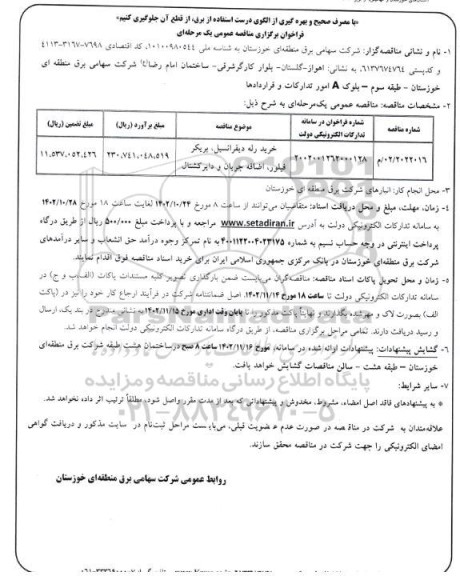 «با مصرف صحیح و بهره گیری از الگوی درست استفاده از برق، از قطع آن جلوگیری کنیم»
فراخوان برگزاری مناقصه عمومی یک مرحله‌ای
۱- نام و نشانی مناقصه‌گزار: شرکت سهامی برق منطقه‌ای خوزستان به شناسه ملی ۱۰۱۰۰۹۸۰۵۴۴، کد اقتصادی
و کدپستی ۶۱۳۷۶۷۴۷۶۴، به نشانی: اهواز-گلستان- بلوار کارگرشرقی- ساختمان امام رضا شرکت سهامی برق منطقه ای
خوزستان – طبقه سوم – بلوک A امور تدارکات و قراردادها
۲- مشخصات مناقصه: مناقصه عمومی یک‌مرحله‌ای به شرح ذیل:
شماره مناقصه شماره فراخوان در سامانه تدارکات الکترونیکی دولت موضوع مناقصه مبلغ برآورد (ریال) مبلغ تضمین (ریال)
۰۲/۲۰۲۲۰۱۶/م ۲۰۰۲۰۰۱۲۶۲۰۰۰۱۲۸ خرید رله دیفرانسیل، بریکر فیلور، اضافه جریان و دایرکشنال ۲۳۰,۷۴۱,۰۴۸,۵۱۹ ۱۱,۵۳۷,۰۵۲,۴۲۶
۳- محل انجام کار: انبارهای شرکت برق منطقه ای خوزستان
۴- زمان، مهلت، مبلغ و محل دریافت اسناد: متقاضیان می‌توانند از ساعت ۸ مورخ ۱۴۰۲/۱۰/۲۴ لغایت ساعت ۱۸ مورخ ۱۴۰۲/۱۰/۲۸
به سامانه تدارکات الکترونیکی دولت به آدرس www.setadiran.ir مراجعه و با پرداخت مبلغ ۵۰۰/۰۰۰ ریال از طریق درگاه
پرداخت اینترنتی در وجه حساب نسیم به شماره ۴۰۰۱۱۲۲۰۰۴۰۲۳۱۷۵ به نام تمرکز وجوه درآمد حق انشعاب و سایر درآمدهای
شرکت برق منطقه‌ای خوزستان در بانک مرکزی جمهوری اسلامی ایران برای خرید اسناد مناقصه فوق اقدام نمایند.
۵- زمان و محل تحویل پاکات اسناد مناقصه: مناقصه‌گران می‌بایست ضمن بارگذاری تصویر کلیه مستندات پاکات (الف-ب و ج) در
سامانه تدارکات الکترونیکی دولت تا ساعت ۱۸ مورخ ۱۴۰۲/۱۱/۱۴، اصل ضمانتنامه شرکت در فرآیند ارجاع کار خود را نیز در (پاکت
الف) بصورت لاک و مهرشده بگذارند و نهایتاً پاکت مذکور را تا پایان وقت اداری مورخ ۱۴۰۲/۱۱/۱۵ به نشانی مندرج در بند یک، ارسال
و رسید دریافت دارند. تمامی مراحل برگزاری مناقصه، از طریق درگاه سامانه تدارکات الکترونیکی دولت انجام خواهد شد.
۶- گشایش پیشنهادات: پیشنهادات ارائه شده در سامانه، مورخ ۱۴۰۲/۱۱/۱۶ ساعت ۸ صبح در ساختمان هشت طبقه شرکت برق منطقه‌ای
خوزستان – طبقه هشت – سالن مناقصات گشایش خواهد یافت.
پایگاه اطلاع رسانی مناقصه و مزایده
۷- سایر شرایط:
۰۲۱-۸۸۳۴۹۶۷۰-۵
* به پیشنهادهای فاقد اصل امضاء، مشروط، مخدوش و پیشنهاداتی که بعد از مدت مقرر واصل شود، مطلقاً ترتیب اثر داده نخواهد شد.
علاقه‌مندان به شرکت در مناقصه در صورت عدم عضویت قبلی، می‌بایست مراحل ثبت‌نام در سایت مذکور و دریافت گواهی
امضای الکترونیکی را جهت شرکت در مناقصه محقق سازند.
روابط عمومی شرکت سهامی برق منطقه‌ای خوزستان